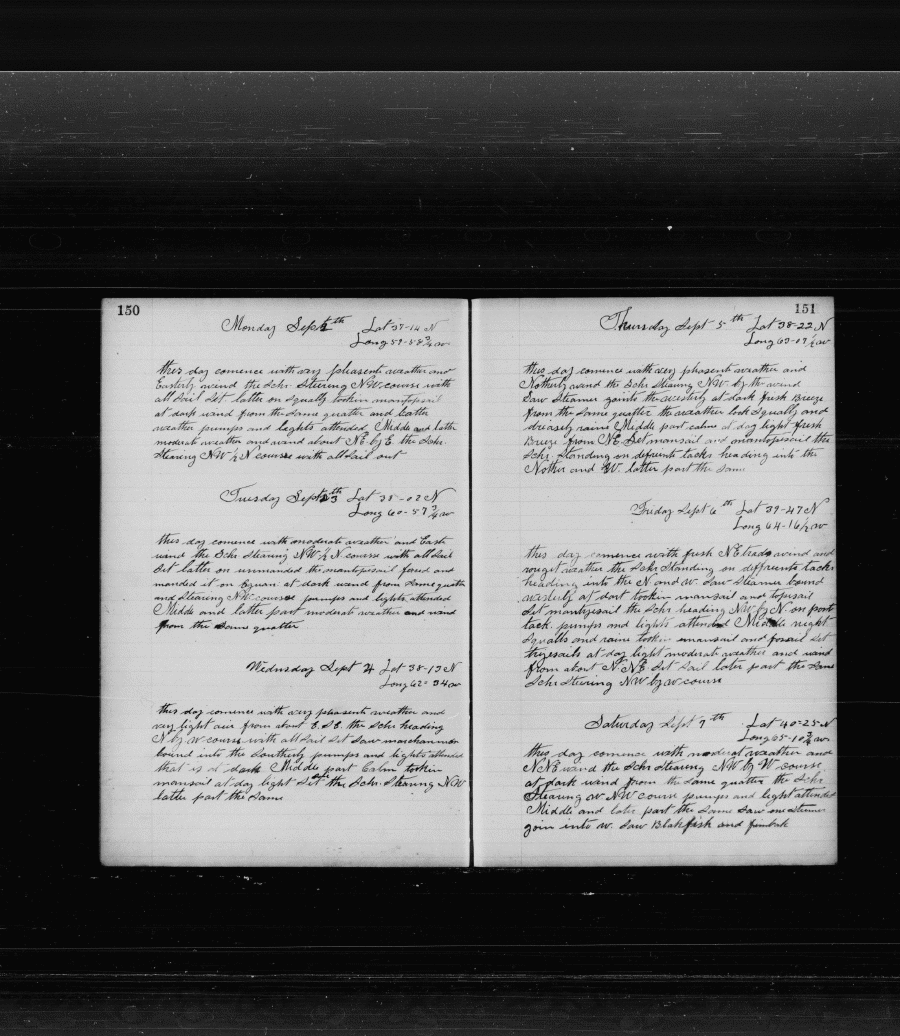 150
Monday Sept 2th Lat 37-14 N
Long 59-58 3/4 w
this day comence with very pleasent weather and
Easterly wind the Schr Stearing N.W. course with
all Sail Set latter on Squally tookin mantopsail
at dark wind from the Same quatter and latter
weather pumps and lights attended Middle and latter
moderat weather and wind about N.E. by E. the Schr.
Stearing NW 1/2 N course with all Sail out
Tuesday Sept 3th Lat 38-02 N
Long 60-57 3/4 w
this day comence with moderate weather and East
wind the Schr Stearing NW 1/2 N course with all Sail
Set latter on unmanded the mantopsail fored and
manded it on again at dark wind from Same quatter
and Stearing N.W. course pumps and lights attended
Middle and latter part moderate weather and wind
from the Same quatter
Wednsday Sept 4 Lat 38-13 N
Long 62-34 w
this day comence with very pleasent weather and
very light air from about E.S.E. the Schr heading
N by W course with all Sail Set Saw marchanman
bound into the Southerly pumps and lights attended
that is at dark Middle part Calm tookin
mansail at day light Set the Schr Stearing N.W
latter part the Same
151
Thursday Sept 5th Lat 38-22 N
Long 63-09 1/2 w
this day comence with very pleasent weather and
Notherly wind the Schr Stearing N.W. by the wind
Saw Steamer goints the westerly at dark fresh Breeze
from the Same quatter the weather look Squally and
drearsly raine Middle part calm at day light fresh
Breeze from NE Set mansail and mantopsail the
Schr. Standing on defrents tacks heading into the
Nother and W. latter part the Same
Friday Sept 6th Lat 39-47 N
Long 64-16 1/2 w
this day comence with fresh N.E trads wind and
rouget weather the Schr Standing on diffrents tacks
heading into the N and w. Saw Steamer bound
westerly at dark tookin mansail and topsail
Set mantrysail the Schr heading NW by N. on port
tack. pumps and lights attended Middle night
Squalls and raine tookin mansail and forsail Set
trysails at day light moderat weather and wind
from about N.N.E Set Sail later part the Same
Schr Stearing NW by w course
Saturday Sept 7th Lat 40-25 N
Long 65-10 3/4 w
this day comence with moderat weather and
N.N.E wind the Schr Stearing N.W by W course
at dark wind from the Same quatter the Schr
Stearing W N.W course pumps and light attended
Middle and late part the Same Saw one Steamer
goin into w. Saw Blakfish and finbak